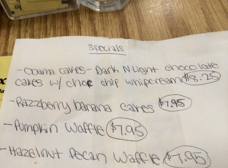 Specials
- Obama Cakes - Dark N Light chocolate
cakes w/ choc chip whipcream $8.25
- Razzberry banana cakes $7.95
- Pumpkin Waffle $7.95
- Hazelnut Pecan Waffle $7.95